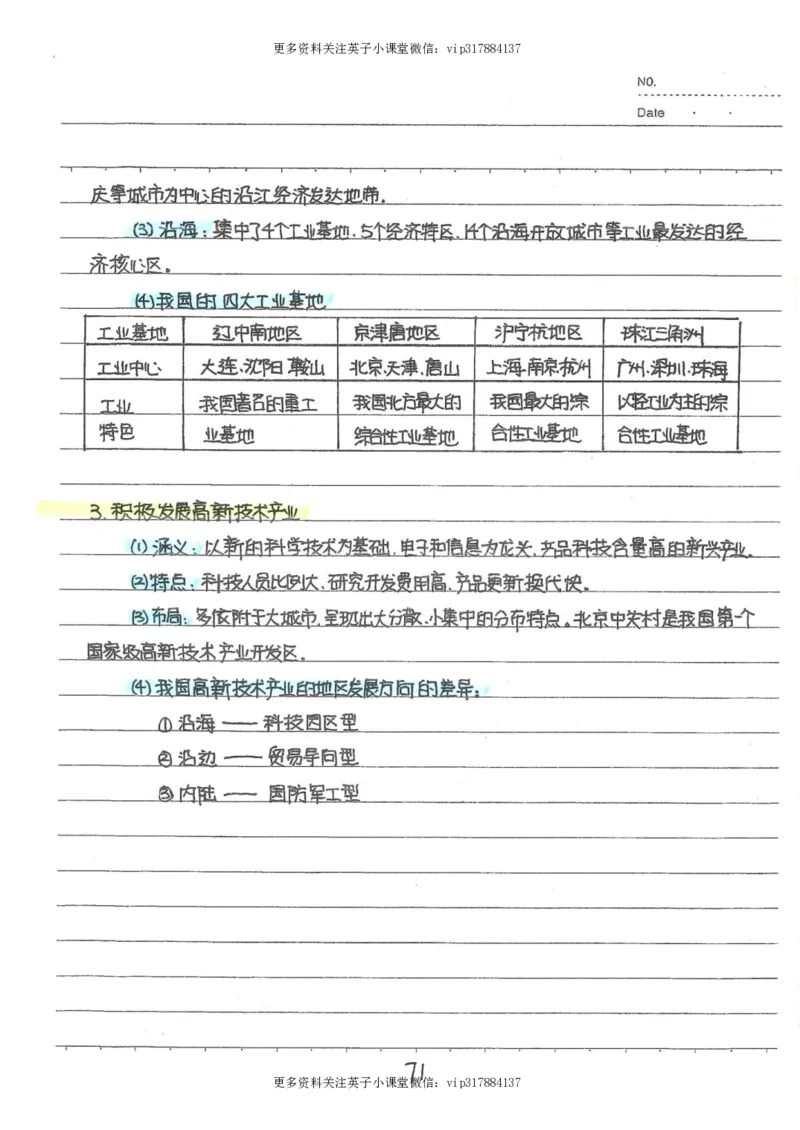 更多资料关注英子小课堂微信：vip317884137
NO.
Date
庆等城市为中心的沿江经济发达地带.
(3) 沿海：集中了4个工业基地、5个经济特区、14个沿海开放城市等工业最发达的经
济核心区。
(4)我国的四大工业基地
工业基地 辽中南地区 京津唐地区 沪宁杭地区 珠江三角洲
工业中心 大连、沈阳、鞍山 北京、天津、唐山 上海、南京、杭州 广州、深圳、珠海
工业 我国著名的重工 我国北方最大的 我国最大的综 以轻工业为主的综
特色 业基地 综合性工业基地 合性工业基地 合性工业基地
3. 积极发展高新技术产业
(1) 涵义：以新的科学技术为基础，电子和信息为龙头，产品科技含量高的新兴产业.
(2)特点：科技人员比例大、研究开发费用高、产品更新换代快。
(3)布局：多依附于大城市，呈现出大分散、小集中的分布特点。北京中关村是我国第一个
国家级高新技术产业开发区.
(4) 我国高新技术产业的地区发展方向的差异：
① 沿海 —— 科技园区型
② 沿边 —— 贸易导向型
③ 内陆 —— 国防军工型
71
更多资料关注英子小课堂微信：vip317884137